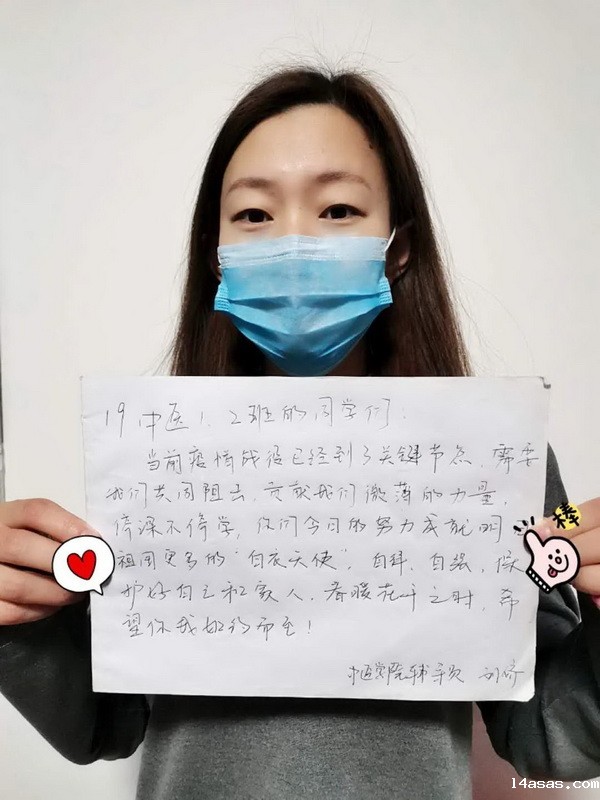 19中医1、2班的同学们：
当前疫情战役已经到了关键节点，需要
我们共同阻击，贡献我们微薄的力量，
停课不停学，你们今日的努力成就明
祖国更多的“白衣天使”，自律、自强，保
护好自己和家人，春暖花开之时，希
望你我如约而至！
中医学院辅导员 刘
棒
14asas.com